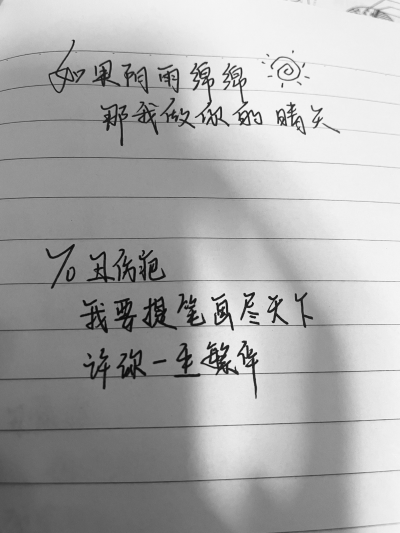 如果阴雨绵绵
那我做你的晴天
To 丑伤疤
我要提笔画尽天下
许你一世繁华